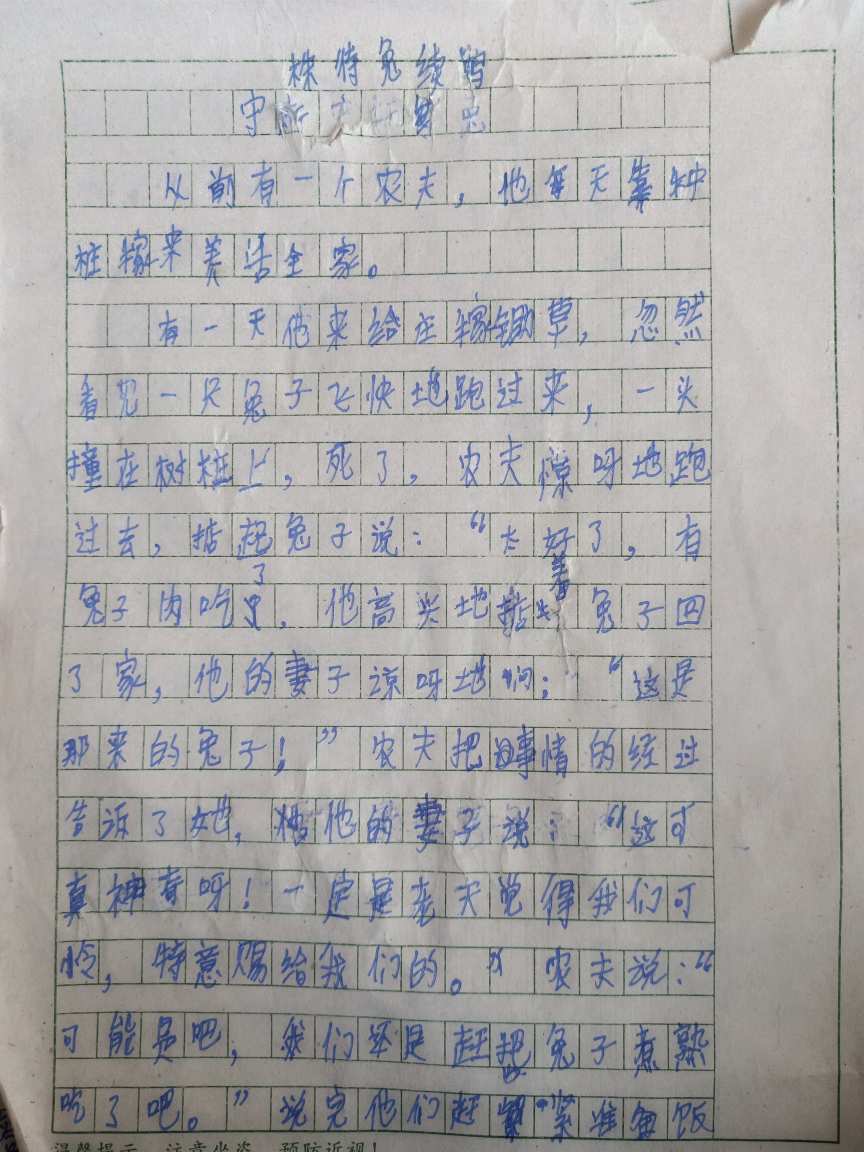 株待兔续写
守
从前有一个农夫，他每天靠种
桩稼来养活全家。
有一天他来给庄稼锄草，忽然
看见一只兔子飞快地跑过来，一头
撞在树桩上，死了，农夫惊呀地跑
过去，掂起兔子说：“太好了，有
兔子肉吃了，他高兴地掂着兔子回
了家，他的妻子谅呀地问：“这是
那来的兔子！”农夫把事情的经过
告诉了她，他的妻子说：“这可
真神奇呀！一定是老天觉得我们可
怜，特意赐给我们的。”农夫说：“
可能是吧，我们还是赶把兔子煮熟
吃了吧。”说完他们赶紧准备饭
温馨提示：注意坐姿 预防近视！